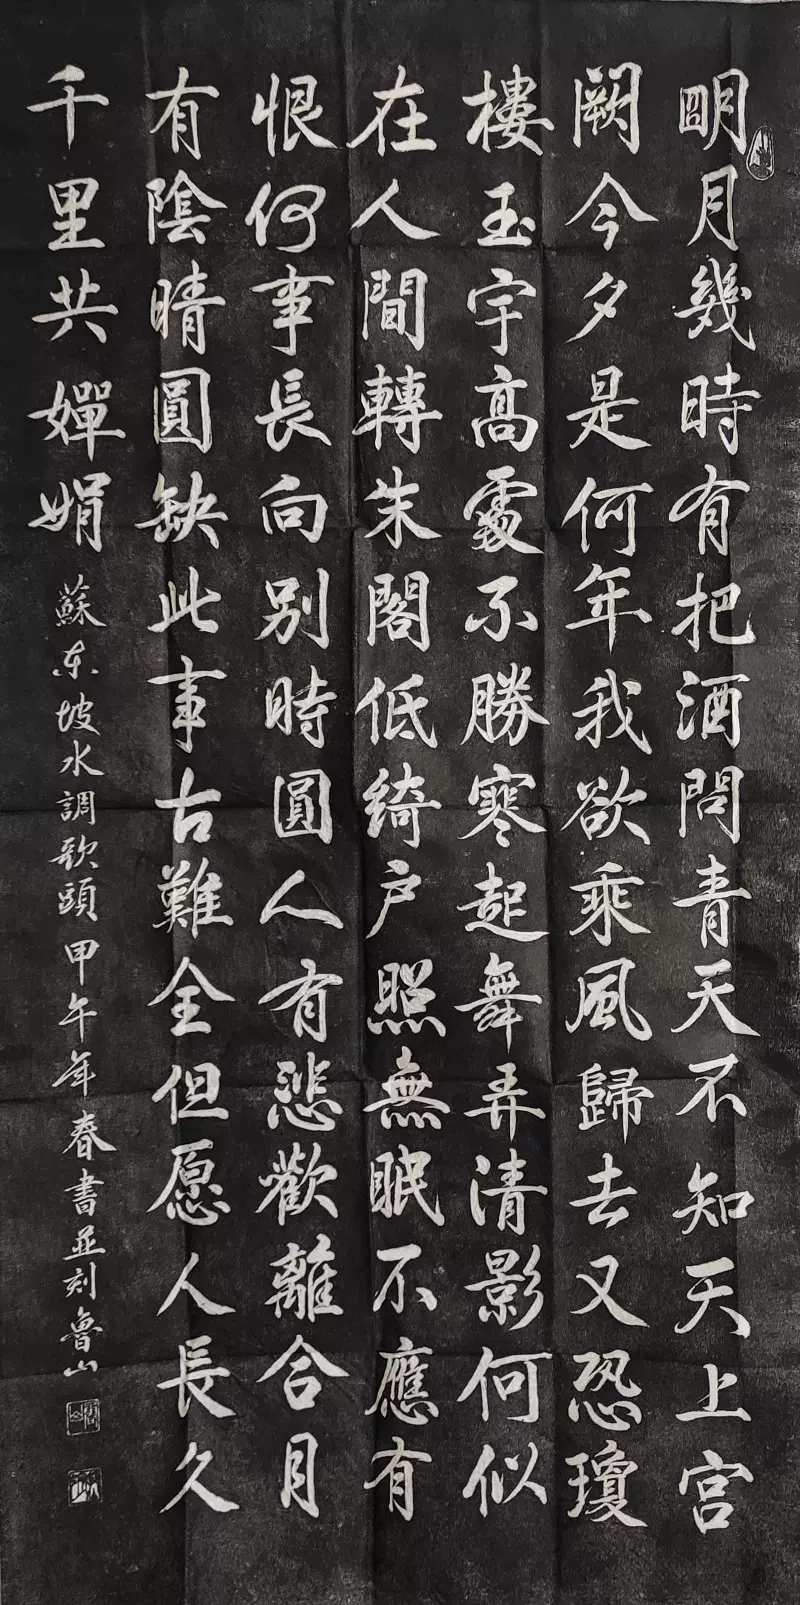 明月幾時有把酒問青天不知天上宮
闕今夕是何年我欲乘風歸去又恐瓊
樓玉宇髙處不勝寒起舞弄清影何似
在人間轉朱閣低綺户照無眠不應有
恨何事長向別時圓人有悲歡離合月
有陰晴圓缺此事古難全但愿人長久
千里共嬋娟
蘇東坡水調歌頭甲午年春書並刻魯山